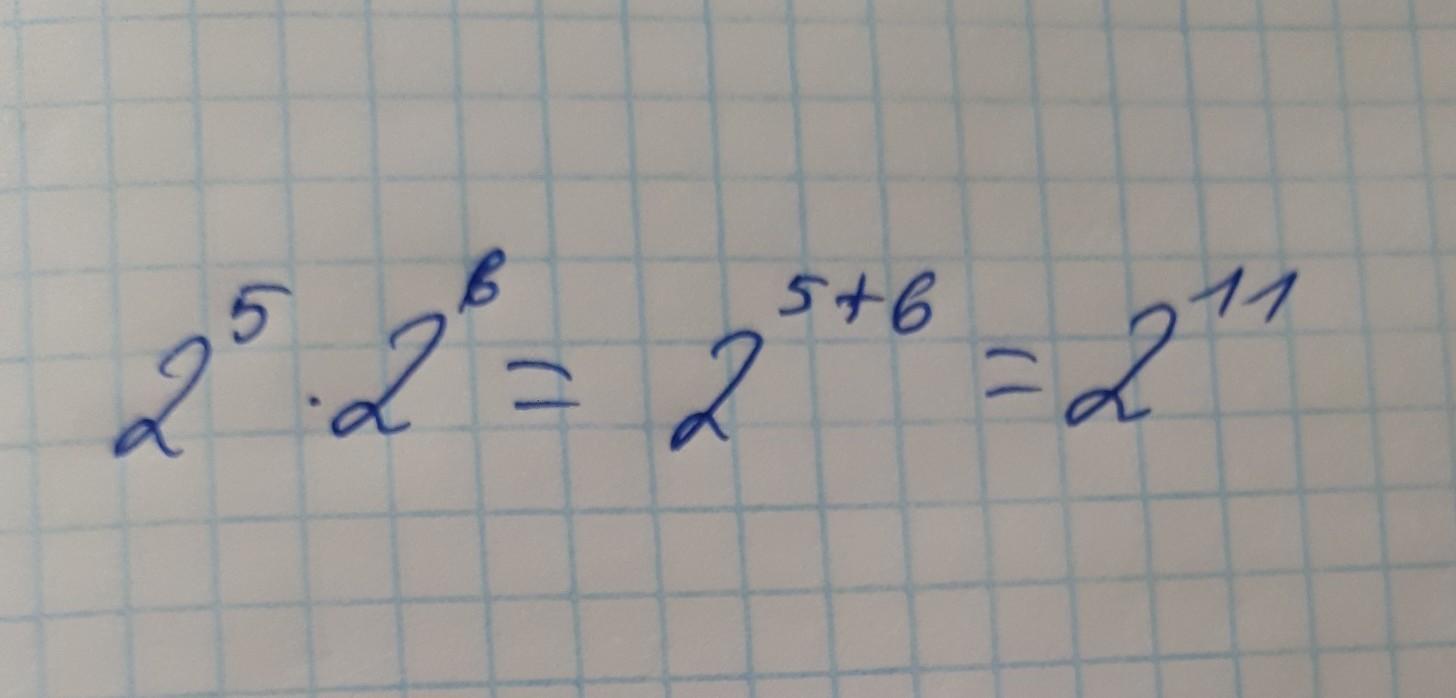 2⁵ · 2⁶ = 2⁵⁺⁶ = 2¹¹